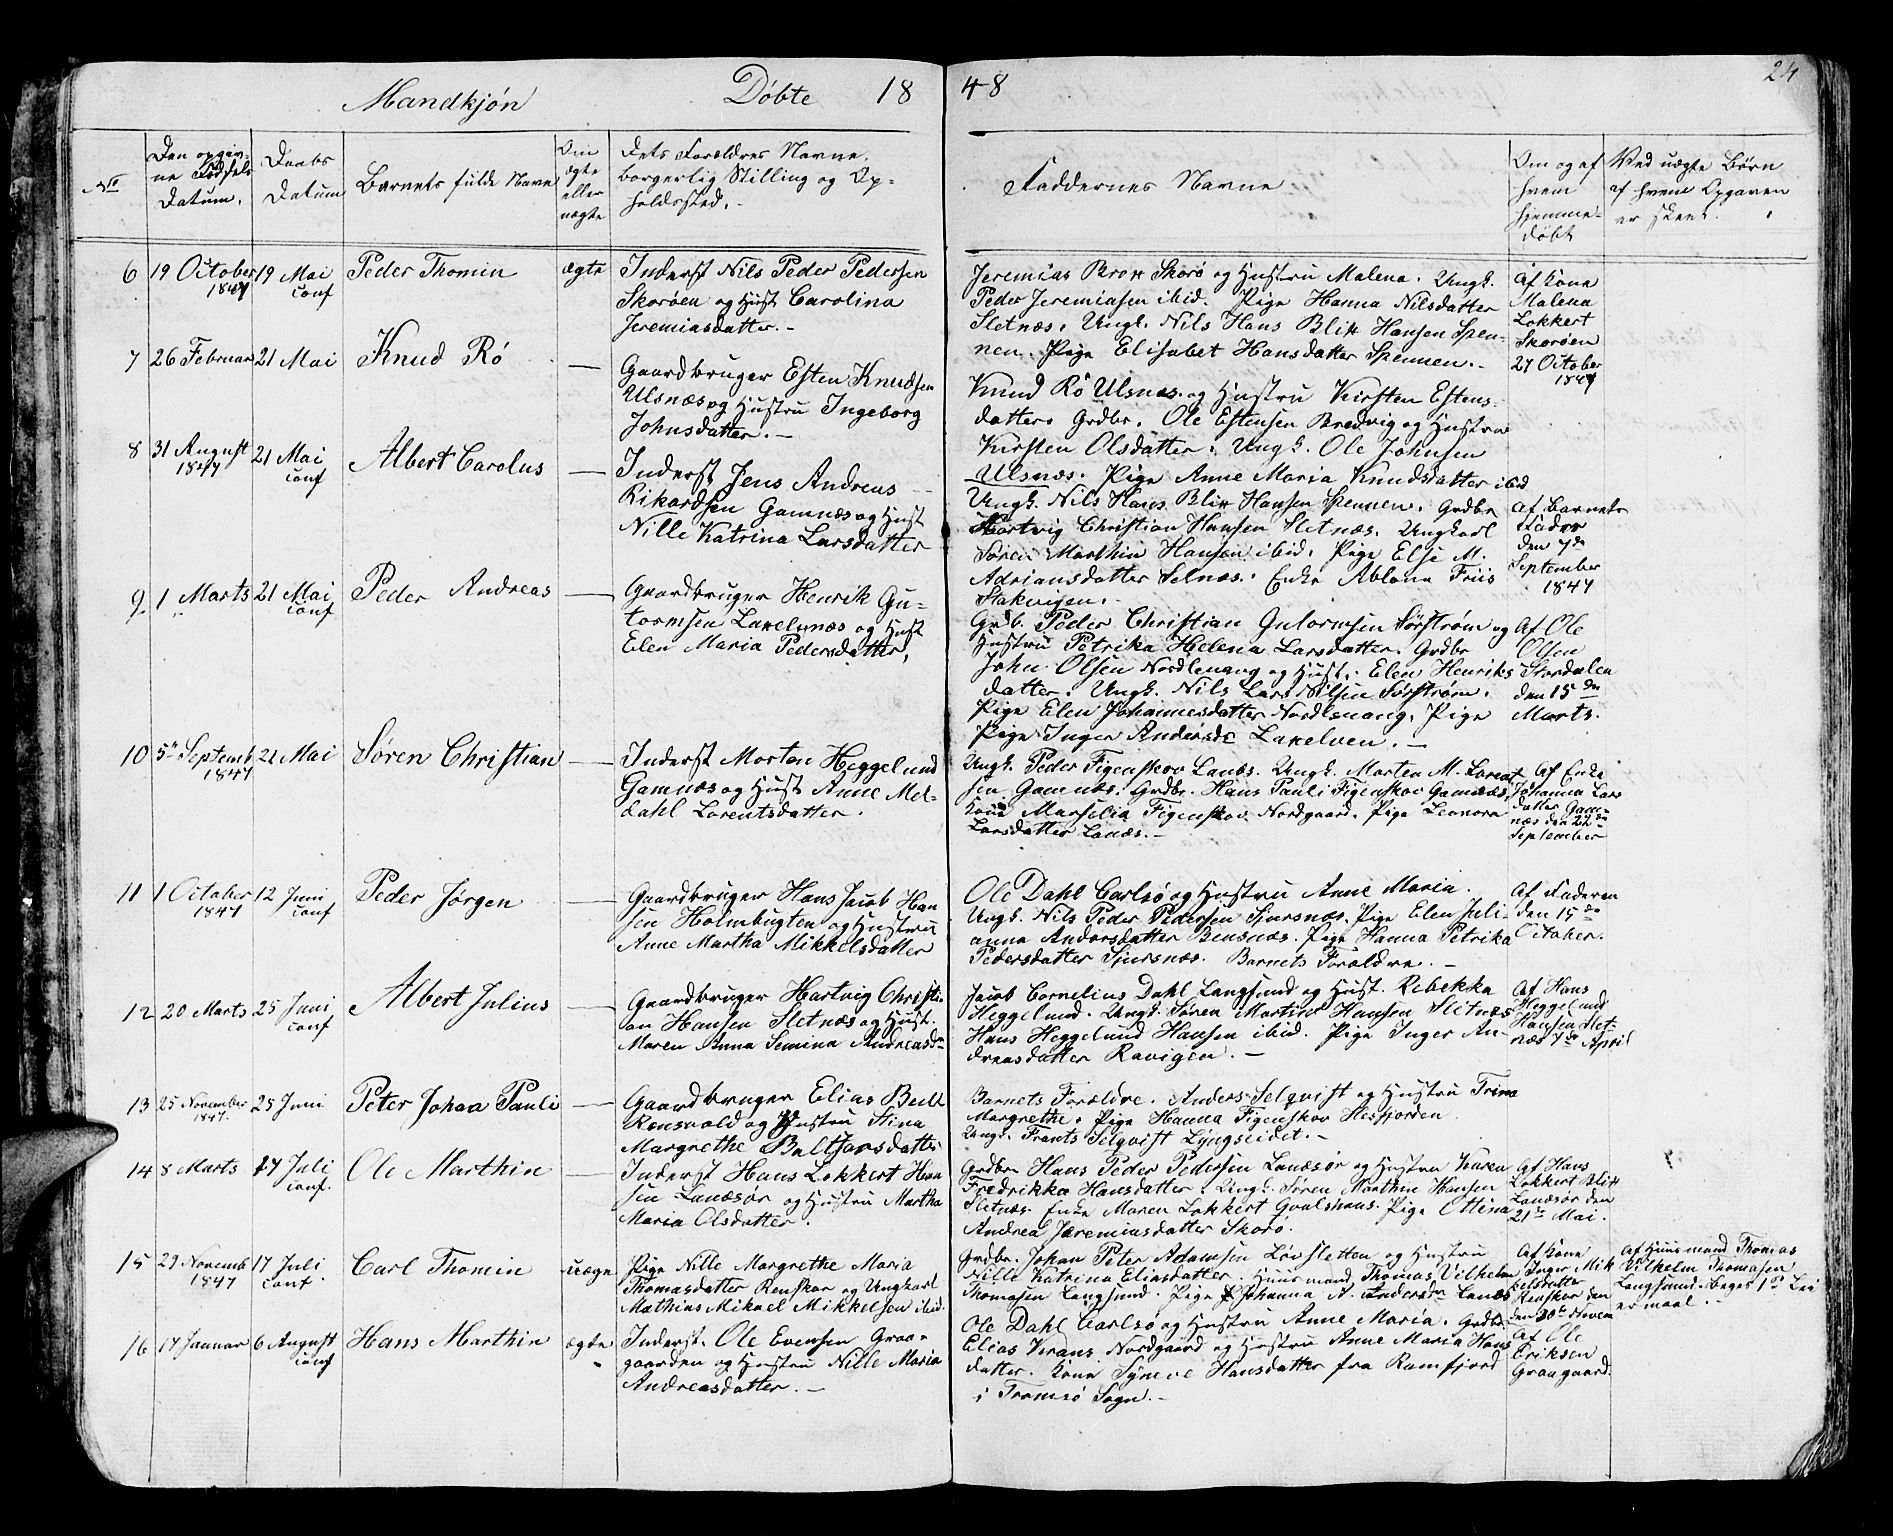 Mandkjön Döbte 18 48 24
No
Den opgiv-
ne Fødsels
Datum.
Daabs
Datum
Barnets fulde Navne
Om
ægte
eller
uægte
Dets Forældres Navne,
borgerlig Stilling og Op-
holdssted.
Faddernes Navne
Om og af
hvem
hjemme-
døbt
Ved uægte Børn
af hvem Opgaven
er skeet.
6 19 October 1847 19 Mai conf Peder Thomin ægte
Inderst Nils Peder Pedersen
Skoröen og Hust Carolina
Jeremiasdatter.-
Jeremias Brox Skorö og Hustru Malena. Ungk.
Peder Jeremiasen ibid. Pige Hanna Nilsdatter
Sletnæs. Ungk. Nils Hans Blix Hansen Spen-
nen. Pige Elisabet Hansdatter Spennen.-
Af Kone
Malena
Lokkert
Skoröen
27 October
1847
7 26 Februar 21 Mai Knud Rö —
Gaardbruger Esten Knudsen
Ulsnæs og Hustru Ingeborg
Johnsdatter.-
Knud Rö Ulsnæs og Hustru Kirsten Estens-
datter. Grdbr. Ole Estensen Bredvig og Hustru
Kirsten Olsdatter. Ungk. Ole Johnsen
Ulsnæs. Pige Anne Maria Knudsdatter ibid
8 31 August 1847 21 Mai conf Albert Carolus —
Inderst Jens Andreas
Rikardsen Gamnæs og Hust
Nille Katrina Larsdatter
Ungk. Nils Hans Blix Hansen Spennen. Grdbr
Hartvig Christian Hansen Sletnæs. Ungkarl
Sören Marthin Hansen ibid. Pige Else M.
Adriansdatter Selnæs. Enke Ablona Friis
Stakvigen.
Af Barnets
Fader
den 7de
September
1847
9. 1 Marts 21 Mai conf Peder Andreas —
Gaardbruger Henrik Gu-
tormsen Lakelvnæs og Hust
Elen Maria Pedersdatter.
Grdb. Peder Christian Gutormsen Sörström og
Hustru Petrika Helena Larsdatter. Grdbr
John Olsen Nordlenang og Hust. Elen Henriks
datter. Ungk. Nils Lars Nilsen Sörström.
Pige Elen Johannesdatter Nordlenang. Pige
Pige Inger Andersdr Lakelven.-
Af Ole
Olsen
Stordalen
den 15de
Marts.
10 5te Septemb 1847 21 Mai Sören Christian —
Inderst Morten Heggelund
Gamnæs og Hust Anne Mel-
dahl Lorentsdatter.
Ungk. Peder Figenskov Lanæs. Ungk. Morten M. Lorent
sen Gamnæs. Grdbr. Hans Pauli Figenskov Gamnæs.
Kone Marselia Figenskov Nordgaard. Pige Leonora
Larsdatter Lanæs.-
Af Enke
Johanna Lars
datter Gam-
næs den 22de
September
11 1 October 1847 12 Juni conf Peder Jörgen —
Gaardbruger Hans Jacob Han
sen Holmbugten og Hustru
Anne Martha Mikkelsdatter
Ole Dahl Carlsö og Hustru Anne Maria.
Ungk. Nils Peder Pedersen Sjursnæs. Pige Elen Juli-
anna Andersdatter Bensnæs. Pige Hanna Petrika
Pedersdatter Sjursnæs. Barnets Forældre.-
Af Faderen
den 15de
October.
12 20 Marts 25 Juni conf Albert Julius —
Gaardbruger Hartvig Christi-
an Hansen Sletnæs og Hust.
Maren Anna Semina Andreasdr
Jacob Cornelius Dahl Langsund og Hust. Rebekka
Heggelund. Ungk. Sören Martin Hansen Sletnæs
Hans Heggelund Hansen ibid. Pige Inger An-
dreasdatter Ravigen.-
Af Hans
Heggelund
Hansen Slet-
næs 7de April
13 25 November 1847. 25 Juni Peter Johan Pauli —
Gaardbruger Elias Bull
Rensvold og Hustru Stina
Margrethe Baltsarsdatter
Barnets Forældre. Anders Selqvist og Hustru Trine
Margrethe. Pige Hanna Figenskov Hesfjorden
Ungk. Frants Selqvist Lyngseidet.-
14 8 Marts 17 Juli conf. Ole Marthin —
Inderst Hans Lokkert Han
sen Lanæsör og Hustru Martha
Maria Olsdatter.
Grdbr. Hans Peder Pedersen Lanæsör og Hustru Karen
Fredrikka Hansdatter. Ungk. Sören Marthin Hansen
Sletnæs. Enke Maren Lokkert Gvalshaus. Pige Ottina
Andrea Jeremiasdatter Skorö.
Af Hans
Lokkert Blix
Lanæsör den
21de Mai.
15 29 Novemb 1847 17 Juli conf. Carl Thomin uægte
Pige Nille Margrethe Maria
Thomasdatter Renskar og Ungkarl
Mathias Mikael Mikkelsen ibid.
Grdbr. Johan Peter Adamsen Lövsletten og Hustru
Nille Katrina Eliasdatter. Huusmand Thomas Vilhelm
Thomasen Langsund. Pige Johanna A. Andersdr Lanæs
Af Kone
Inger Mik
kelsdatter
Renskar den
den 30te Novem
Af Huusmand Thomas
Vilhelm Thomasen
Langsund. Beges 1ste Lei
ermaal.-
16 17 Januar 6 August conf Hans Marthin ægte
Inderst Ole Evensen Graa-
gaarden og Hustru Nille Maria
Andreasdatter.-
Ole Dahl Carlsö og Hustru Anne Maria. Grdbr
Elias Kraus Nordgaard og Hustru Anne Maria Hans
datter. Kone Synove Hansdatter fra Ramfjord
i Tromsö Sogn.-
Af Ole
Eriksen
Graagaard.